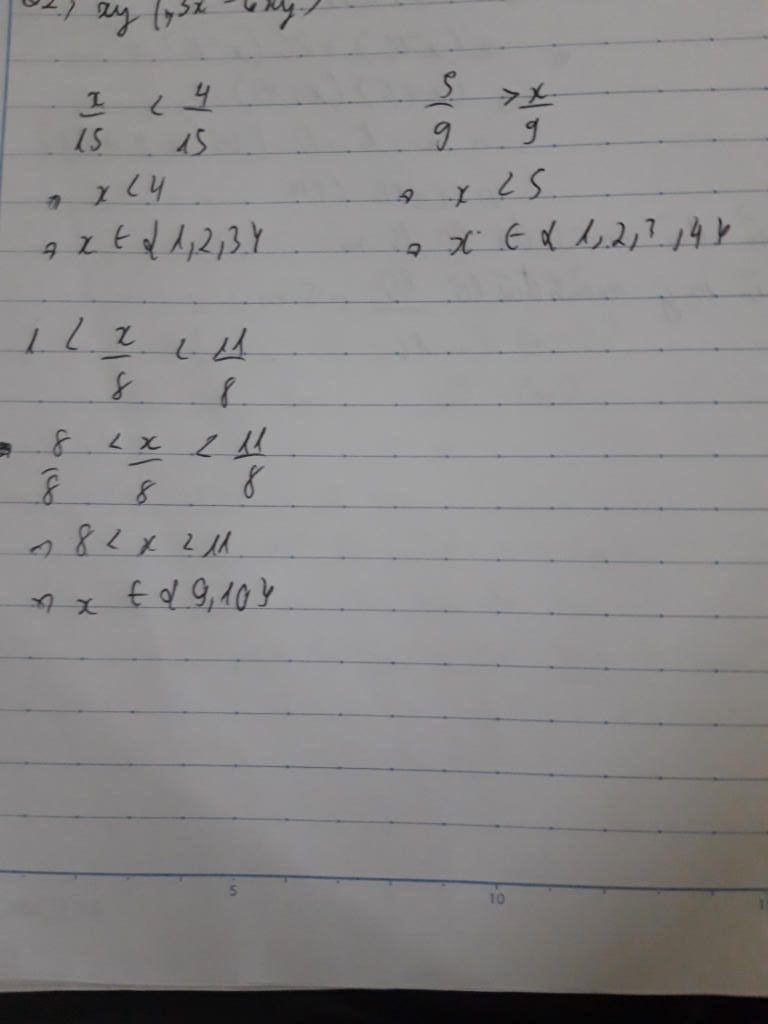 xy (
x/15 < 4/15
⇒ x < 4
⇒ x ∈ {1,2,3}
5/9 > x/9
⇒ x < 5
⇒ x ∈ {1,2,3,4}
1 < x/8 < 11/8
8/8 < x/8 < 11/8
⇒ 8 < x < 11
⇒ x ∈ {9,10}
5 10